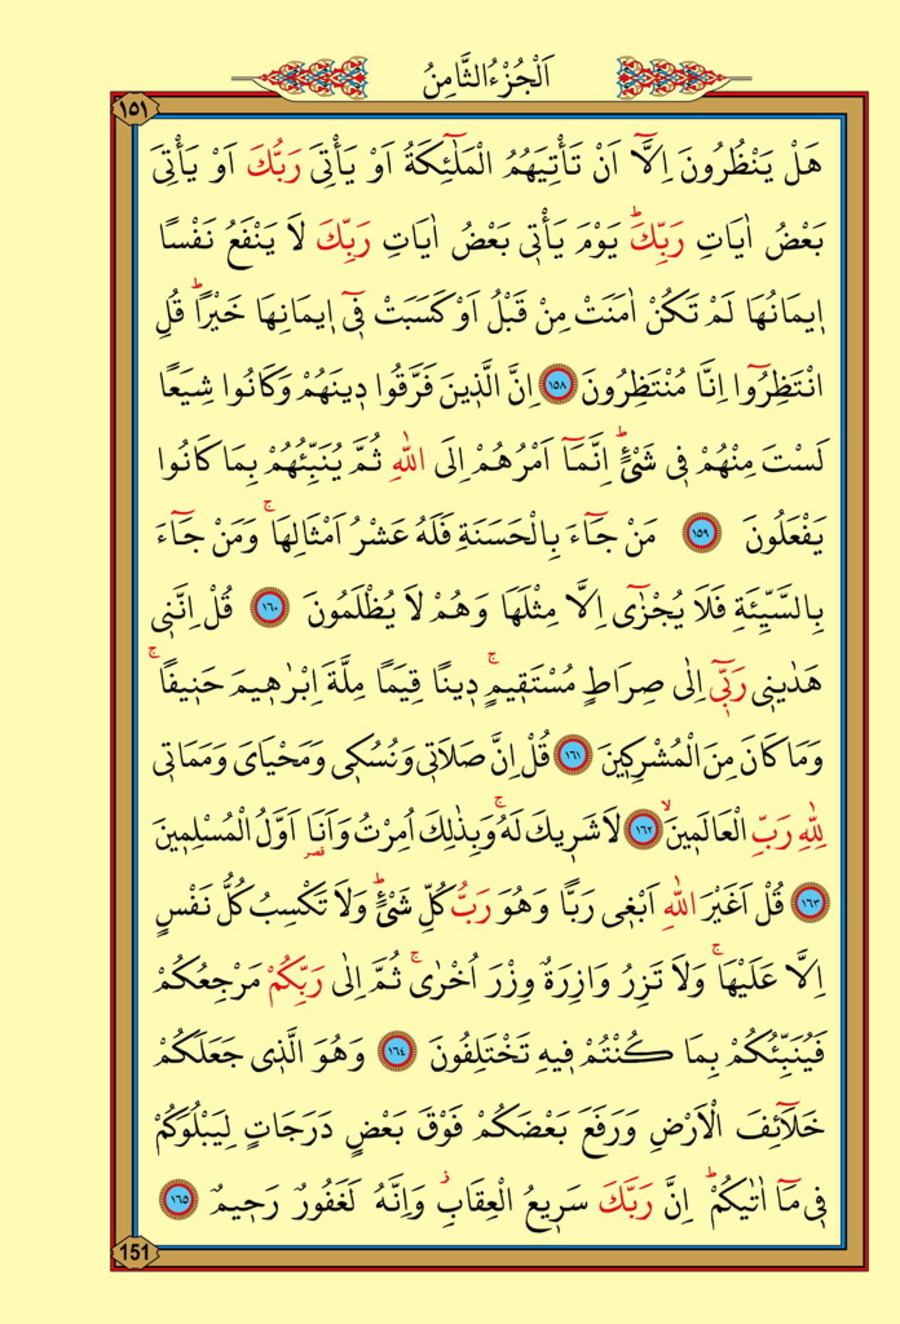 اَلْجُزْءُ الثَّامِنُ
١٥١
هَلْ يَنْظُرُونَ اِلَّٓا اَنْ تَأْتِيَهُمُ الْمَلٰٓئِكَةُ اَوْ يَأْتِىَ رَبُّكَ اَوْ يَأْتِىَ
بَعْضُ اٰيَاتِ رَبِّكَۜ يَوْمَ يَأْت۪ى بَعْضُ اٰيَاتِ رَبِّكَ لَا يَنْفَعُ نَفْسًا
ا۪يمَانُهَا لَمْ تَكُنْ اٰمَنَتْ مِنْ قَبْلُ اَوْ كَسَبَتْ ف۪ٓى ا۪يمَانِهَا خَيْرًاۜ قُلِ
انْتَظِرُٓوا اِنَّا مُنْتَظِرُونَ ١٥٨ اِنَّ الَّذ۪ينَ فَرَّقُوا د۪ينَهُمْ وَكَانُوا شِيَعًا
لَسْتَ مِنْهُمْ ف۪ى شَىْءٍۜ اِنَّمَٓا اَمْرُهُمْ اِلَى اللّٰهِ ثُمَّ يُنَبِّئُهُمْ بِمَا كَانُوا
يَفْعَلُونَ ١٥٩ مَنْ جَٓاءَ بِالْحَسَنَةِ فَلَهُ عَشْرُ اَمْثَالِهَاۚ وَمَنْ جَٓاءَ
بِالسَّيِّئَةِ فَلَا يُجْزٰٓى اِلَّا مِثْلَهَا وَهُمْ لَا يُظْلَمُونَ ١٦٠ قُلْ اِنَّن۪ى
هَدٰين۪ى رَبّ۪ٓى اِلٰى صِرَاطٍ مُسْتَق۪يمٍۚ د۪ينًا قِيَمًا مِلَّةَ اِبْرٰه۪يمَ حَن۪يفًاۚ
وَمَا كَانَ مِنَ الْمُشْرِك۪ينَ ١٦١ قُلْ اِنَّ صَلَات۪ى وَنُسُك۪ى وَمَحْيَاىَ وَمَمَات۪ى
لِلّٰهِ رَبِّ الْعَالَم۪ينَۙ ١٦٢ لَا شَر۪يكَ لَهُۚ وَبِذٰلِكَ اُمِرْتُ وَاَنَا۬ اَوَّلُ الْمُسْلِم۪ينَ
قصر
١٦٣ قُلْ اَغَيْرَ اللّٰهِ اَبْغ۪ى رَبًّا وَهُوَ رَبُّ كُلِّ شَىْءٍۜ وَلَا تَكْسِبُ كُلُّ نَفْسٍ
اِلَّا عَلَيْهَاۚ وَلَا تَزِرُ وَازِرَةٌ وِزْرَ اُخْرٰىۚ ثُمَّ اِلٰى رَبِّكُمْ مَرْجِعُكُمْ
فَيُنَبِّئُكُمْ بِمَا كُنْتُمْ ف۪يهِ تَخْتَلِفُونَ ١٦٤ وَهُوَ الَّذ۪ى جَعَلَكُمْ
خَلَٓائِفَ الْاَرْضِ وَرَفَعَ بَعْضَكُمْ فَوْقَ بَعْضٍ دَرَجَاتٍ لِيَبْلُوَكُمْ
ف۪ى مَٓا اٰتٰيكُمْۜ اِنَّ رَبَّكَ سَر۪يعُ الْعِقَابِۘ وَاِنَّهُ لَغَفُورٌ رَح۪يمٌ ١٦٥
151